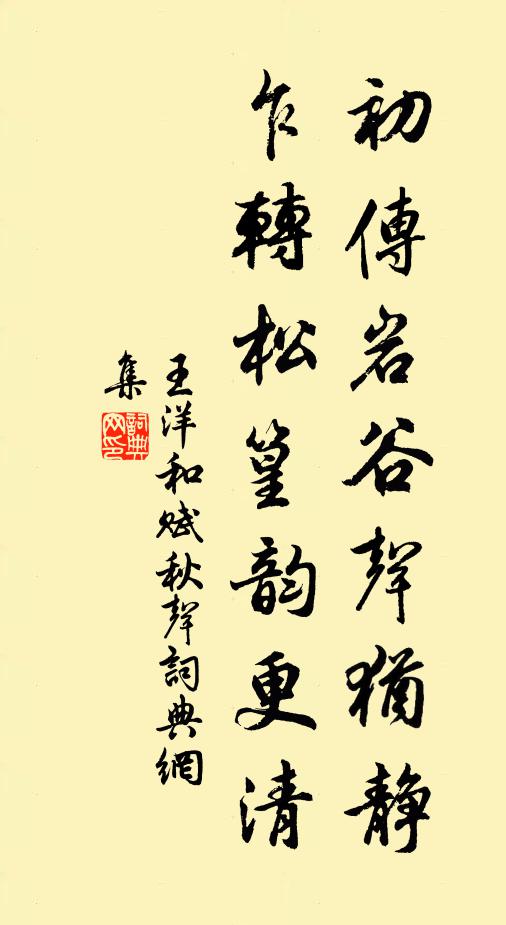 初傳岩谷聲猶静
乍轉松篁韵更清
王洋和賦秋聲詞典網
集
詞典网印